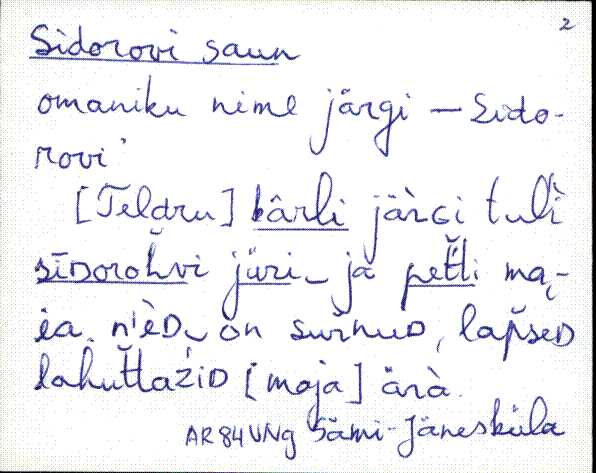 2
Sidorovi saun
omaniku nime järgi – Sido-
rovi
[Teldru] kàrli järGi tuli
sīDorohvi jüri ja pet̆t̆i ma-
ia. nèD on surnuD, lapseD
lahut̆t̆aziD [maja] ärà.
AR 84 VNg Sämi-Jänesküla